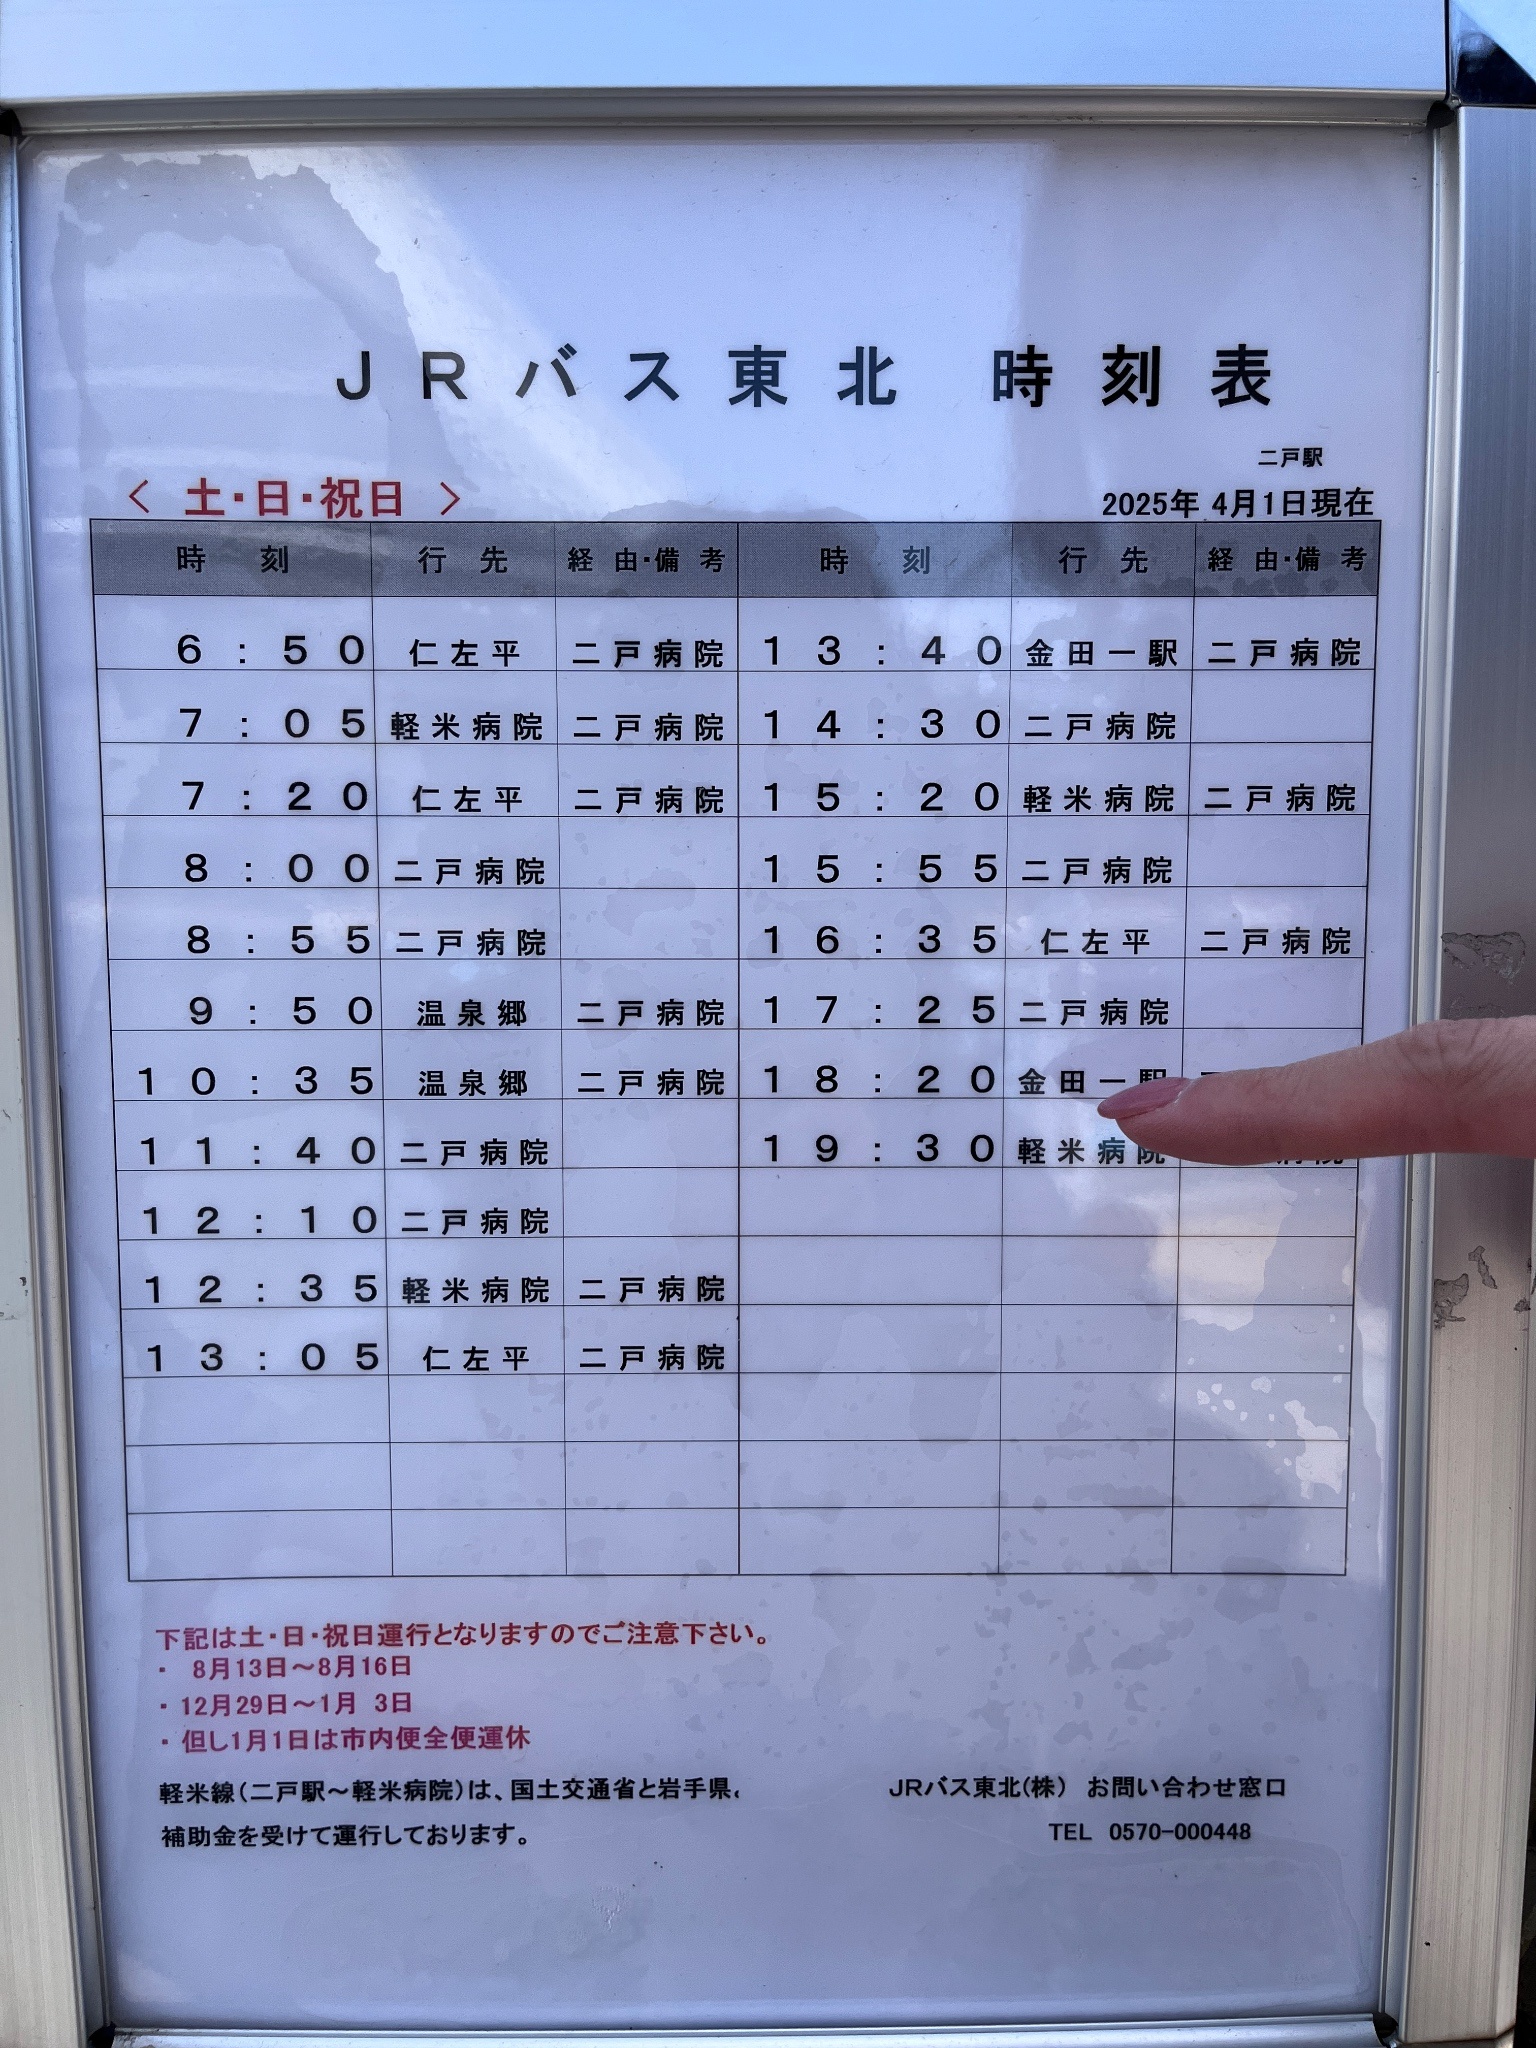 JRバス東北 時刻表
二戸駅
＜ 土・日・祝日 ＞ 2025年 4月1日現在
時刻 行先 経由・備考 時刻 行先 経由・備考
6:50 仁左平 二戸病院 13:40 金田一駅 二戸病院
7:05 軽米病院 二戸病院 14:30 二戸病院
7:20 仁左平 二戸病院 15:20 軽米病院 二戸病院
8:00 二戸病院 15:55 二戸病院
8:55 二戸病院 16:35 仁左平 二戸病院
9:50 温泉郷 二戸病院 17:25 二戸病院
10:35 温泉郷 二戸病院 18:20 金田一駅
11:40 二戸病院 19:30 軽米病院
12:10 二戸病院
12:35 軽米病院 二戸病院
13:05 仁左平 二戸病院
下記は土・日・祝日運行となりますのでご注意下さい。
・ 8月13日～8月16日
・12月29日～1月 3日
・但し1月1日は市内便全便運休
軽米線(二戸駅～軽米病院)は、国土交通省と岩手県、
補助金を受けて運行しております。
JRバス東北(株) お問い合わせ窓口
TEL 0570-000448